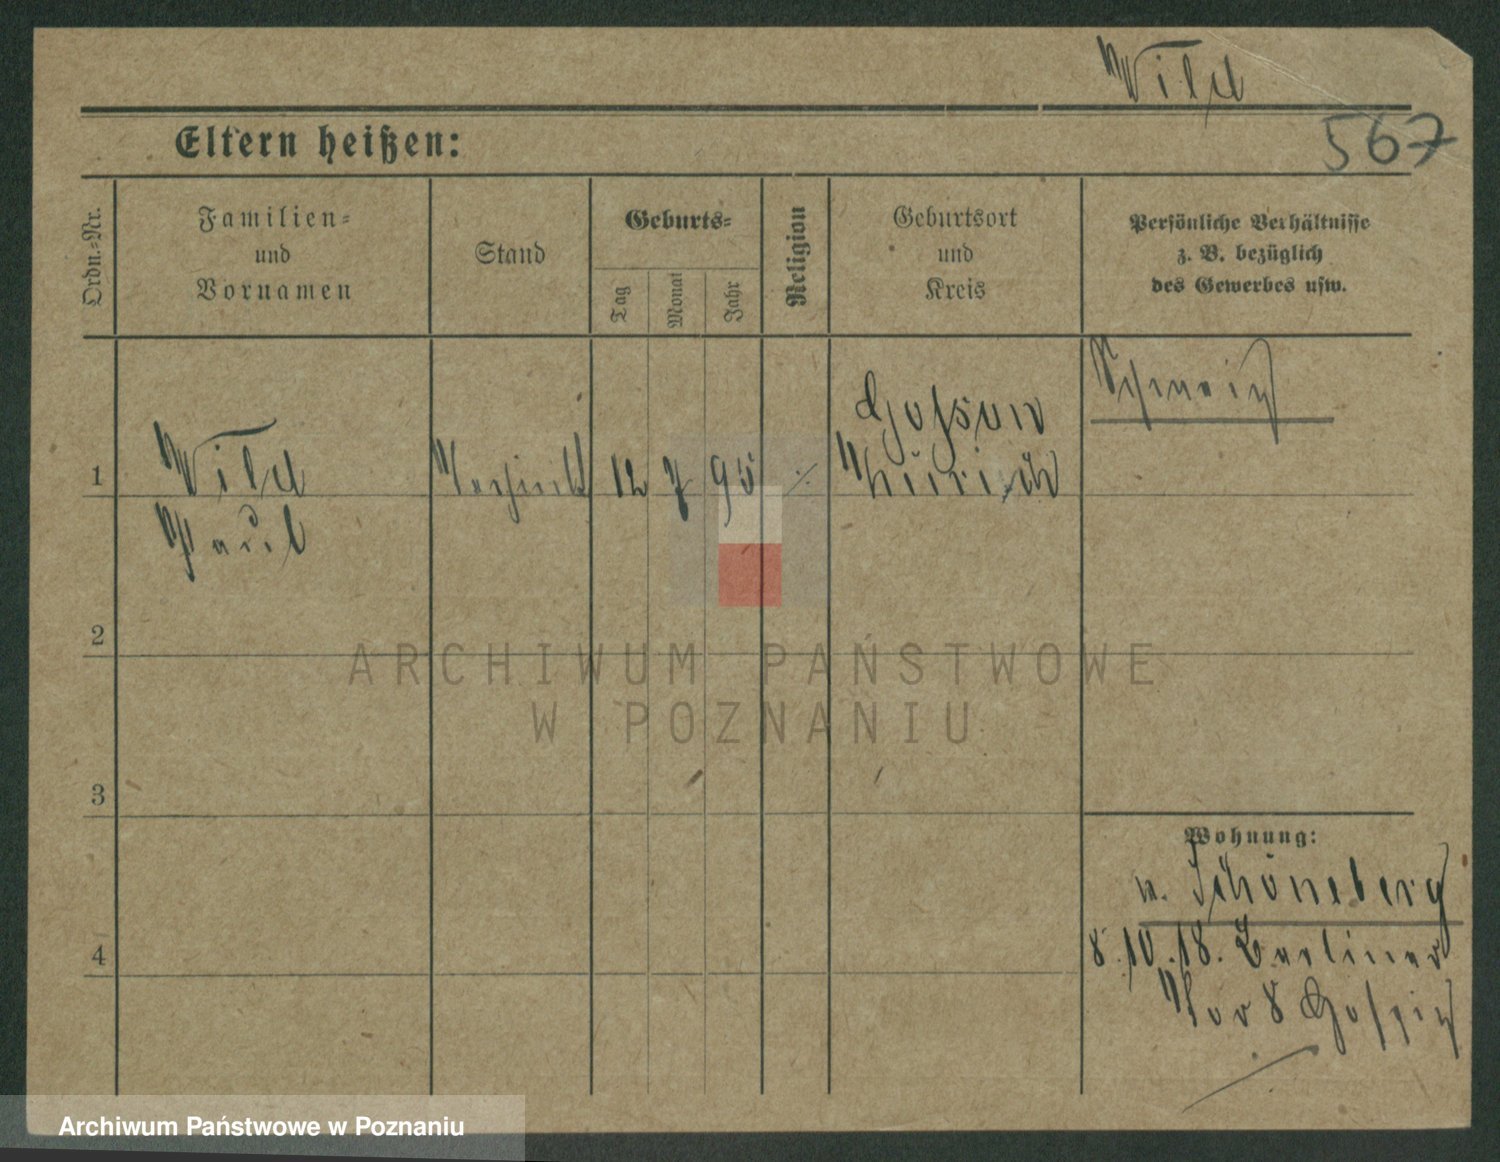 Wild
567
Eltern heißen:
Ordn.-Nr.
Familien-
und
Vornamen
Stand
Geburts-
Tag
Monat
Jahr
Religion
Geburtsort
und
Kreis
Persönliche Verhältnisse
z. B. bezüglich
des Gewerbes usw.
Schweiz
1
Wild
12 7 95 ./.
Zürich
Paul
2
ARCHIWUM PAŃSTWOWE
W POZNANIU
3
Wohnung:
n. Schöneberg
4
8.10.18. Berliner
Tor 8 Hospiz
Archiwum Państwowe w Poznaniu